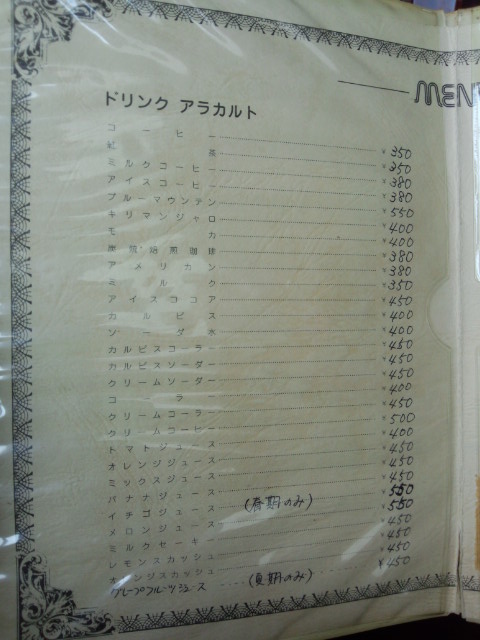 MENU
ドリンク アラカルト
コーヒー ¥350
紅茶 ¥350
ミルクコーヒー ¥380
アイスコーヒー ¥380
ブルーマウンテン ¥550
キリマンジャロ ¥400
モカ ¥400
炭焼焙煎珈琲 ¥380
アメリカン ¥380
ミルク ¥350
アイスココア ¥450
カルピス ¥400
ソーダ水 ¥400
カルピスコーラー ¥450
カルピスソーダー ¥450
クリームソーダー ¥450
コーラ ¥400
クリームコーラー ¥450
クリームコーヒー ¥500
トマトジュース ¥400
オレンジジュース ¥450
ミックスジュース ¥450
バナナジュース ¥450
イチゴジュース (春期のみ) ¥550
メロンジュース ¥550
ミルクセーキ ¥450
レモンスカッシュ ¥450
オレンジスカッシュ ¥450
グレープフルーツジュース (夏期のみ) ¥450